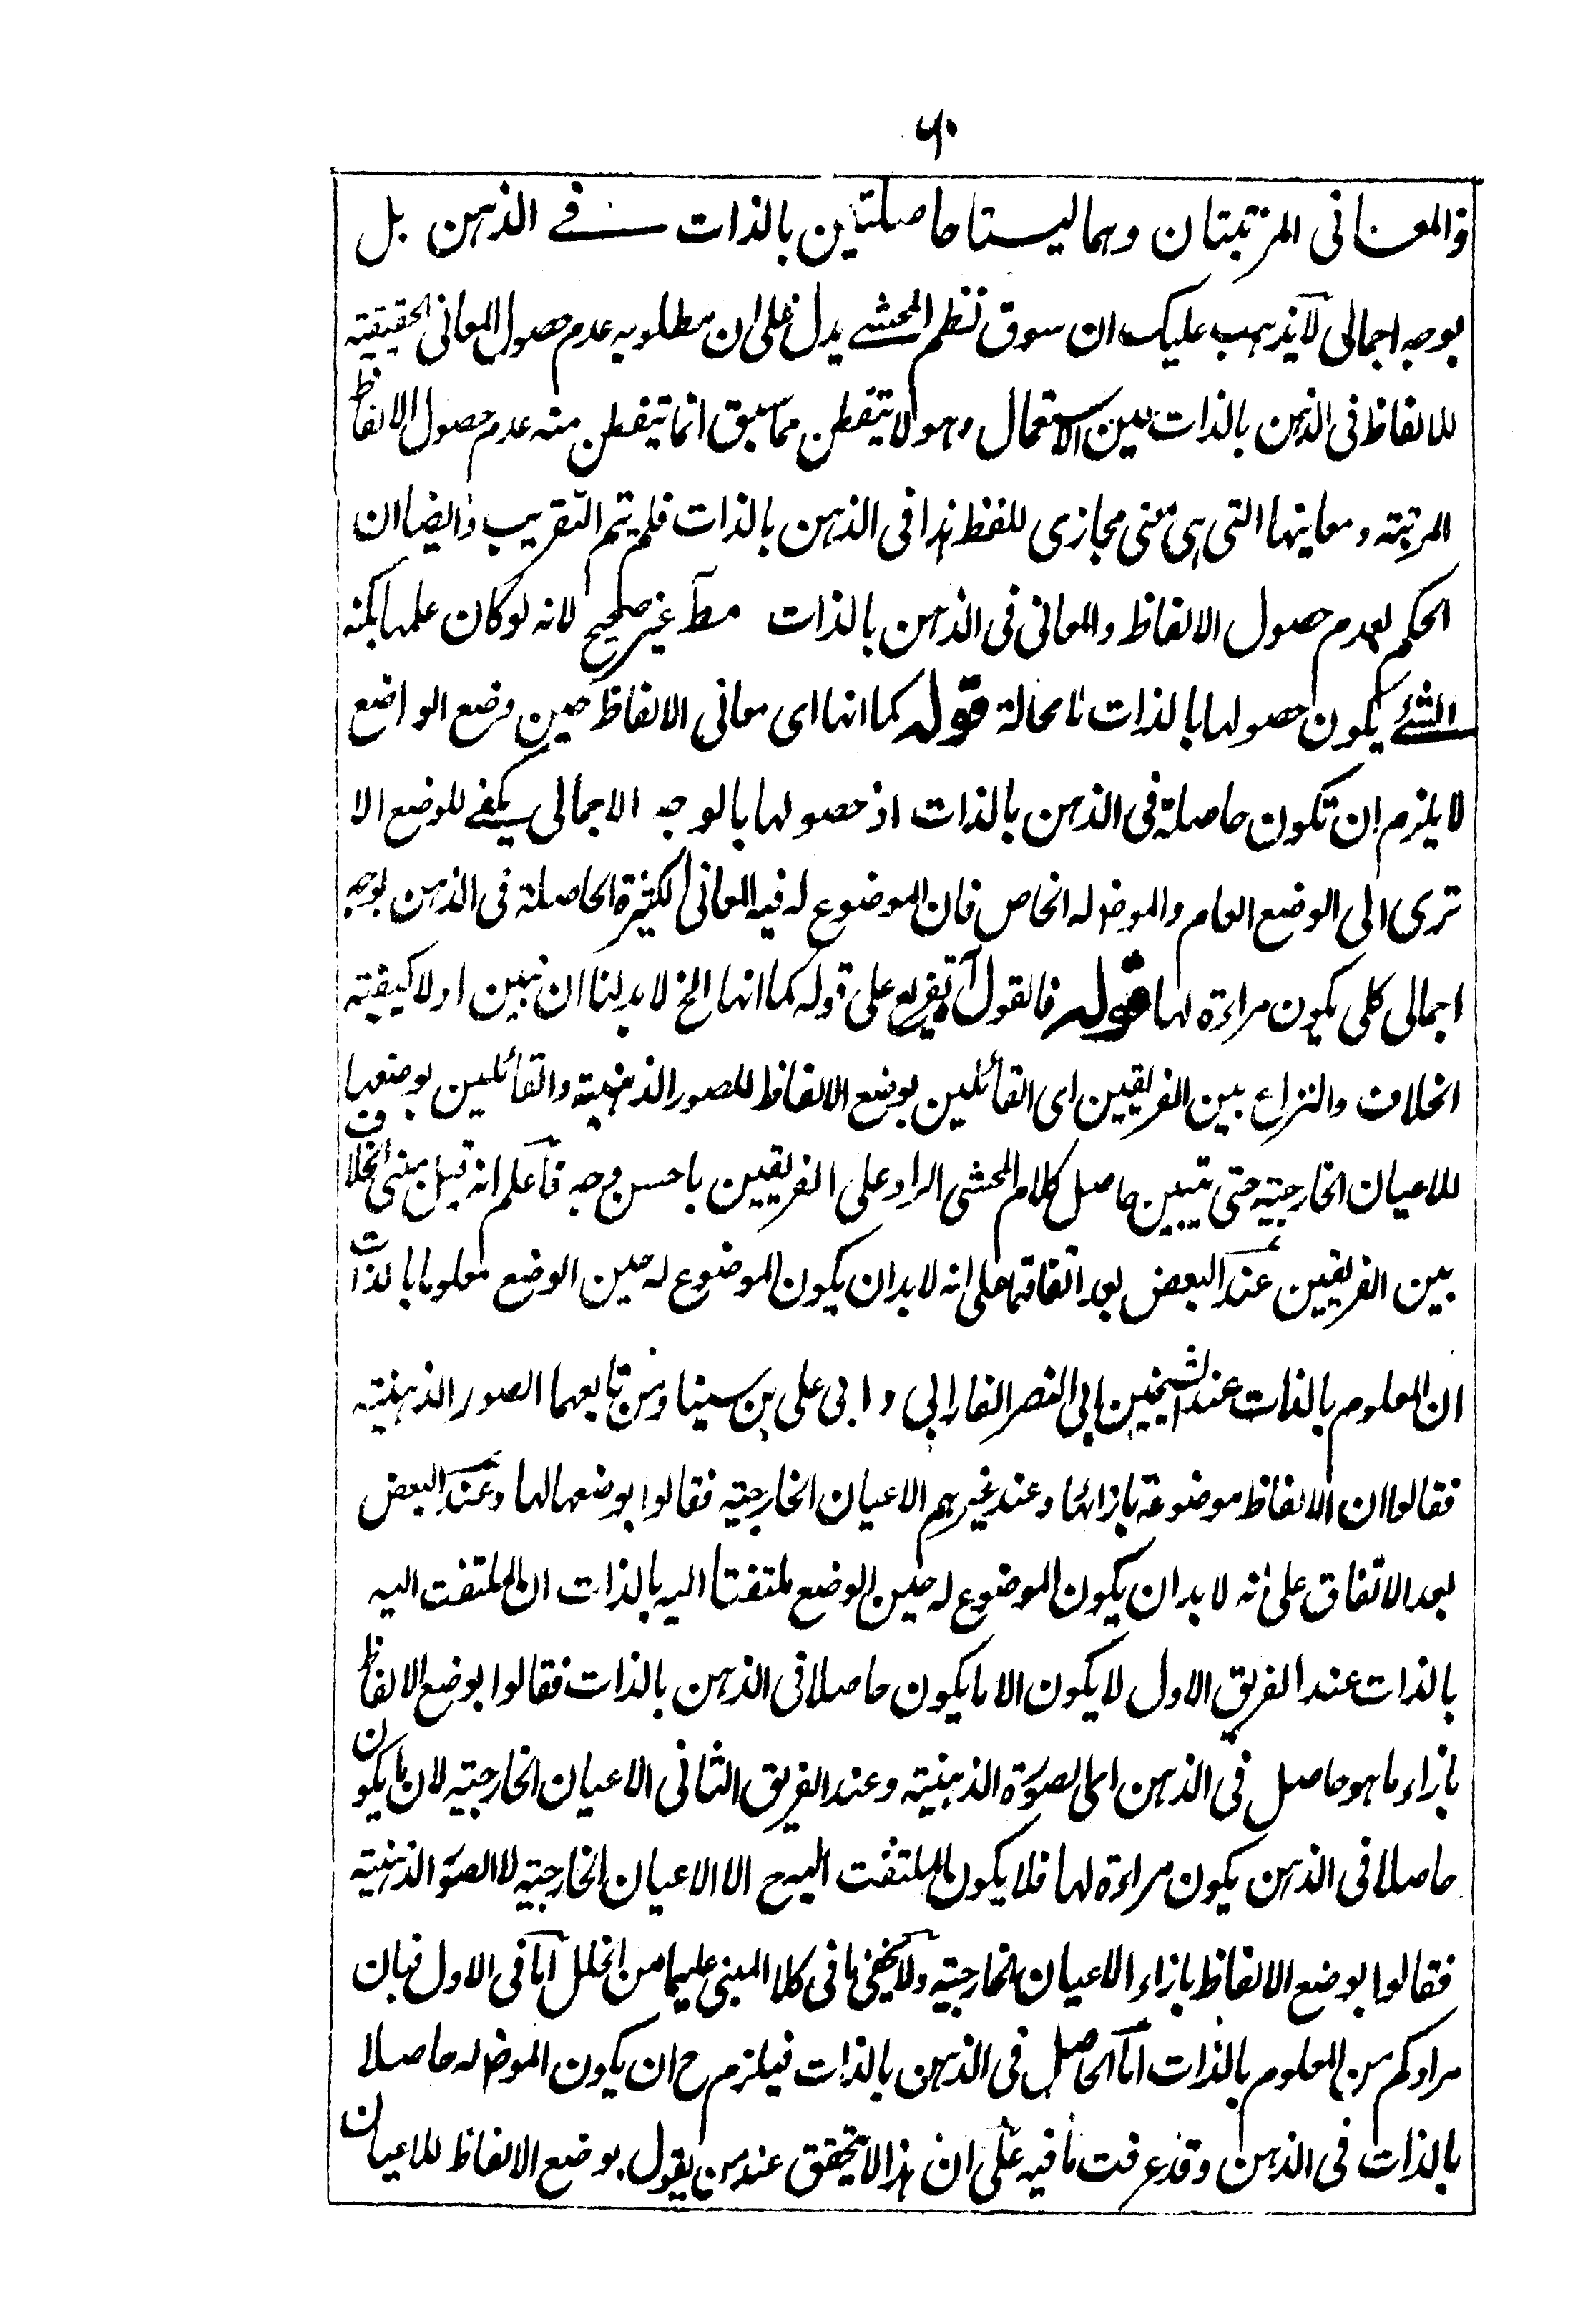 ٦٠
والمعانى المرتبتان وهما ليستا حاصلتين بالذات فى الذهن بل
بوجه اجمالى لا يذهب عليك ان سوق نظم المحشى يدل على ان مطلوبه عدم حصول المعانى الحقيقية
للالفاظ فى الذهن بالذات حين الاستعمال وهو لا يتفطن مما سبق انما يتفطن منه عدم حصول الالفاظ
المرتبة ومعاينها التى هى معنى مجازى للفظ هذا فى الذهن بالذات فلم يتم التقريب وايضا ان
الحكم بعدم حصول الالفاظ والمعانى فى الذهن بالذات مطآ غير صحيح لانه لو كان علمها بكنه
الشئ يكون حصولها بالذات لا محالة قوله كما انها اى معانى الالفاظ حين وضع الواضع
لا يلزم ان تكون حاصلة فى الذهن بالذات اذ حصولها بالوجه الاجمالى يكفى للوضع الا
ترى الى الوضع العام والموضوله الخاص فان الموضوع له فيه المعانى الكثيرة الحاصلة فى الذهن بوجه
اجمالى كلى يكون مراءة لها قوله فالقول آه تفريع على قوله كما انها الخ لا بد لنا ان نبين اولا كيفية
الخلاف والنزاع بين الفريقين اى القائلين بوضع الالفاظ للصور الذهنية والقائلين بوضعها
للاعيان الخارجية حتى تبين حاصل كلام المحشى الراد على الفريقين باحسن وجه فاعلم انه قيل مبنى الخلاف
بين الفريقين عند البعض بعد اتفاقهما على انه لا بد ان يكون الموضوع له حين الوضع معلوما بالذات
ان المعلوم بالذات عند الشيخين ابى النصر الفارابى وابى على بن سينا ومن تابعهما الصور الذهنية
فقالوا ان الالفاظ موضوعة بازائها وعند غيرهم الاعيان الخارجية فقالوا بوضعها لها وعند البعض
بعد الاتفاق على انه لا بد ان يكون الموضوع له حين الوضع ملتفتا اليه بالذات ان الملتفت اليه
بالذات عند الفريق الاول لا يكون الا ما يكون حاصلا فى الذهن بالذات فقالوا بوضع الالفاظ
بازاء ما هو حاصل فى الذهن اى الصورة الذهنية وعند الفريق الثانى الاعيان الخارجية لان ما يكون
حاصلا فى الذهن يكون مراءة لها فلا يكون الملتفت اليه ح الا الاعيان الخارجية لا الصو الذهنية
فقالوا بوضع الالفاظ بازاء الاعيان الخارجية ولا يخفى ما فى كلا المبنى عليهما من الخلل اما فى الاول فبان
مرادكم من المعلوم بالذات اما الحاصل فى الذهن بالذات فيلزم ح ان يكون الموضو له حاصلا
بالذات فى الذهن وقد عرفت ما فيه على ان هذا لا يتحقق عند من يقول بوضع الالفاظ للاعيان